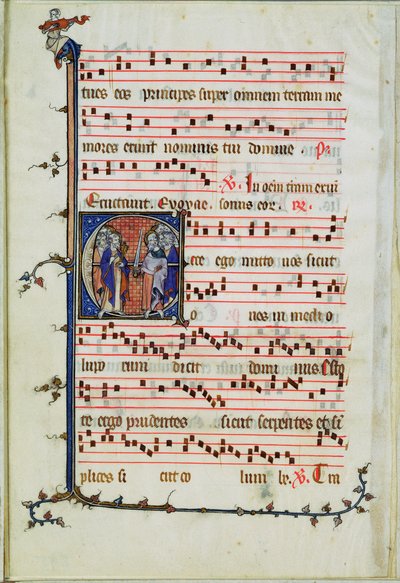 tues eos principes super omnem terram me
mores erunt nominis tui domine Pr.
℣. In oēm
Eructauit. Euouae. sonus eor. ℟.
Ecce ego mitto uos sicut
o uos in medio
dicit domi nus Esto
te ergo prudentes sicut serpentes et si
plices si cut co lum be. ℣.